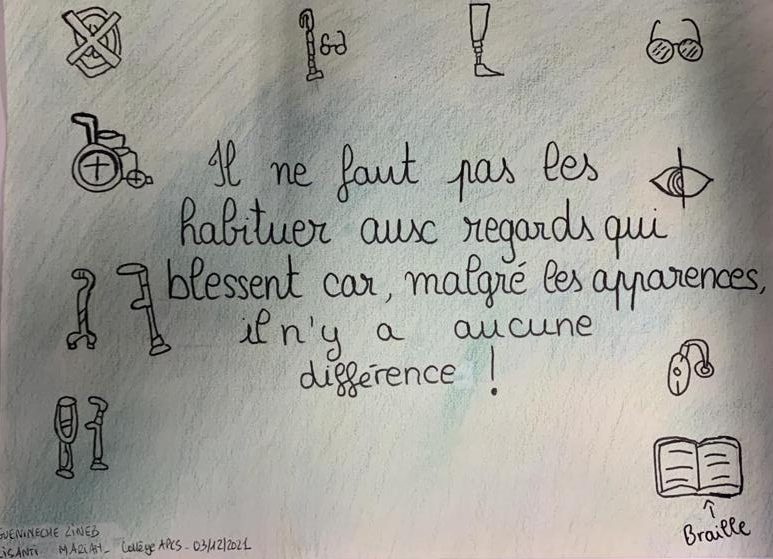 Il ne faut pas les
habituer aux regards qui
blessent car, malgré les apparences,
il n'y a aucune
différence !
Braille
GUENINECHE ZINEB
Collège APCS - 03/12/2021